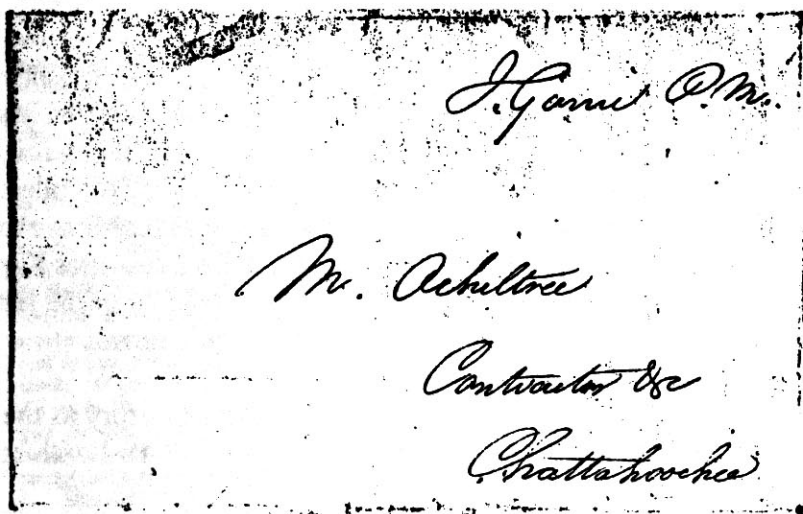 J. Gorrie P.M.
Mr. Ochiltree
Contractor &c
Chattahoochee